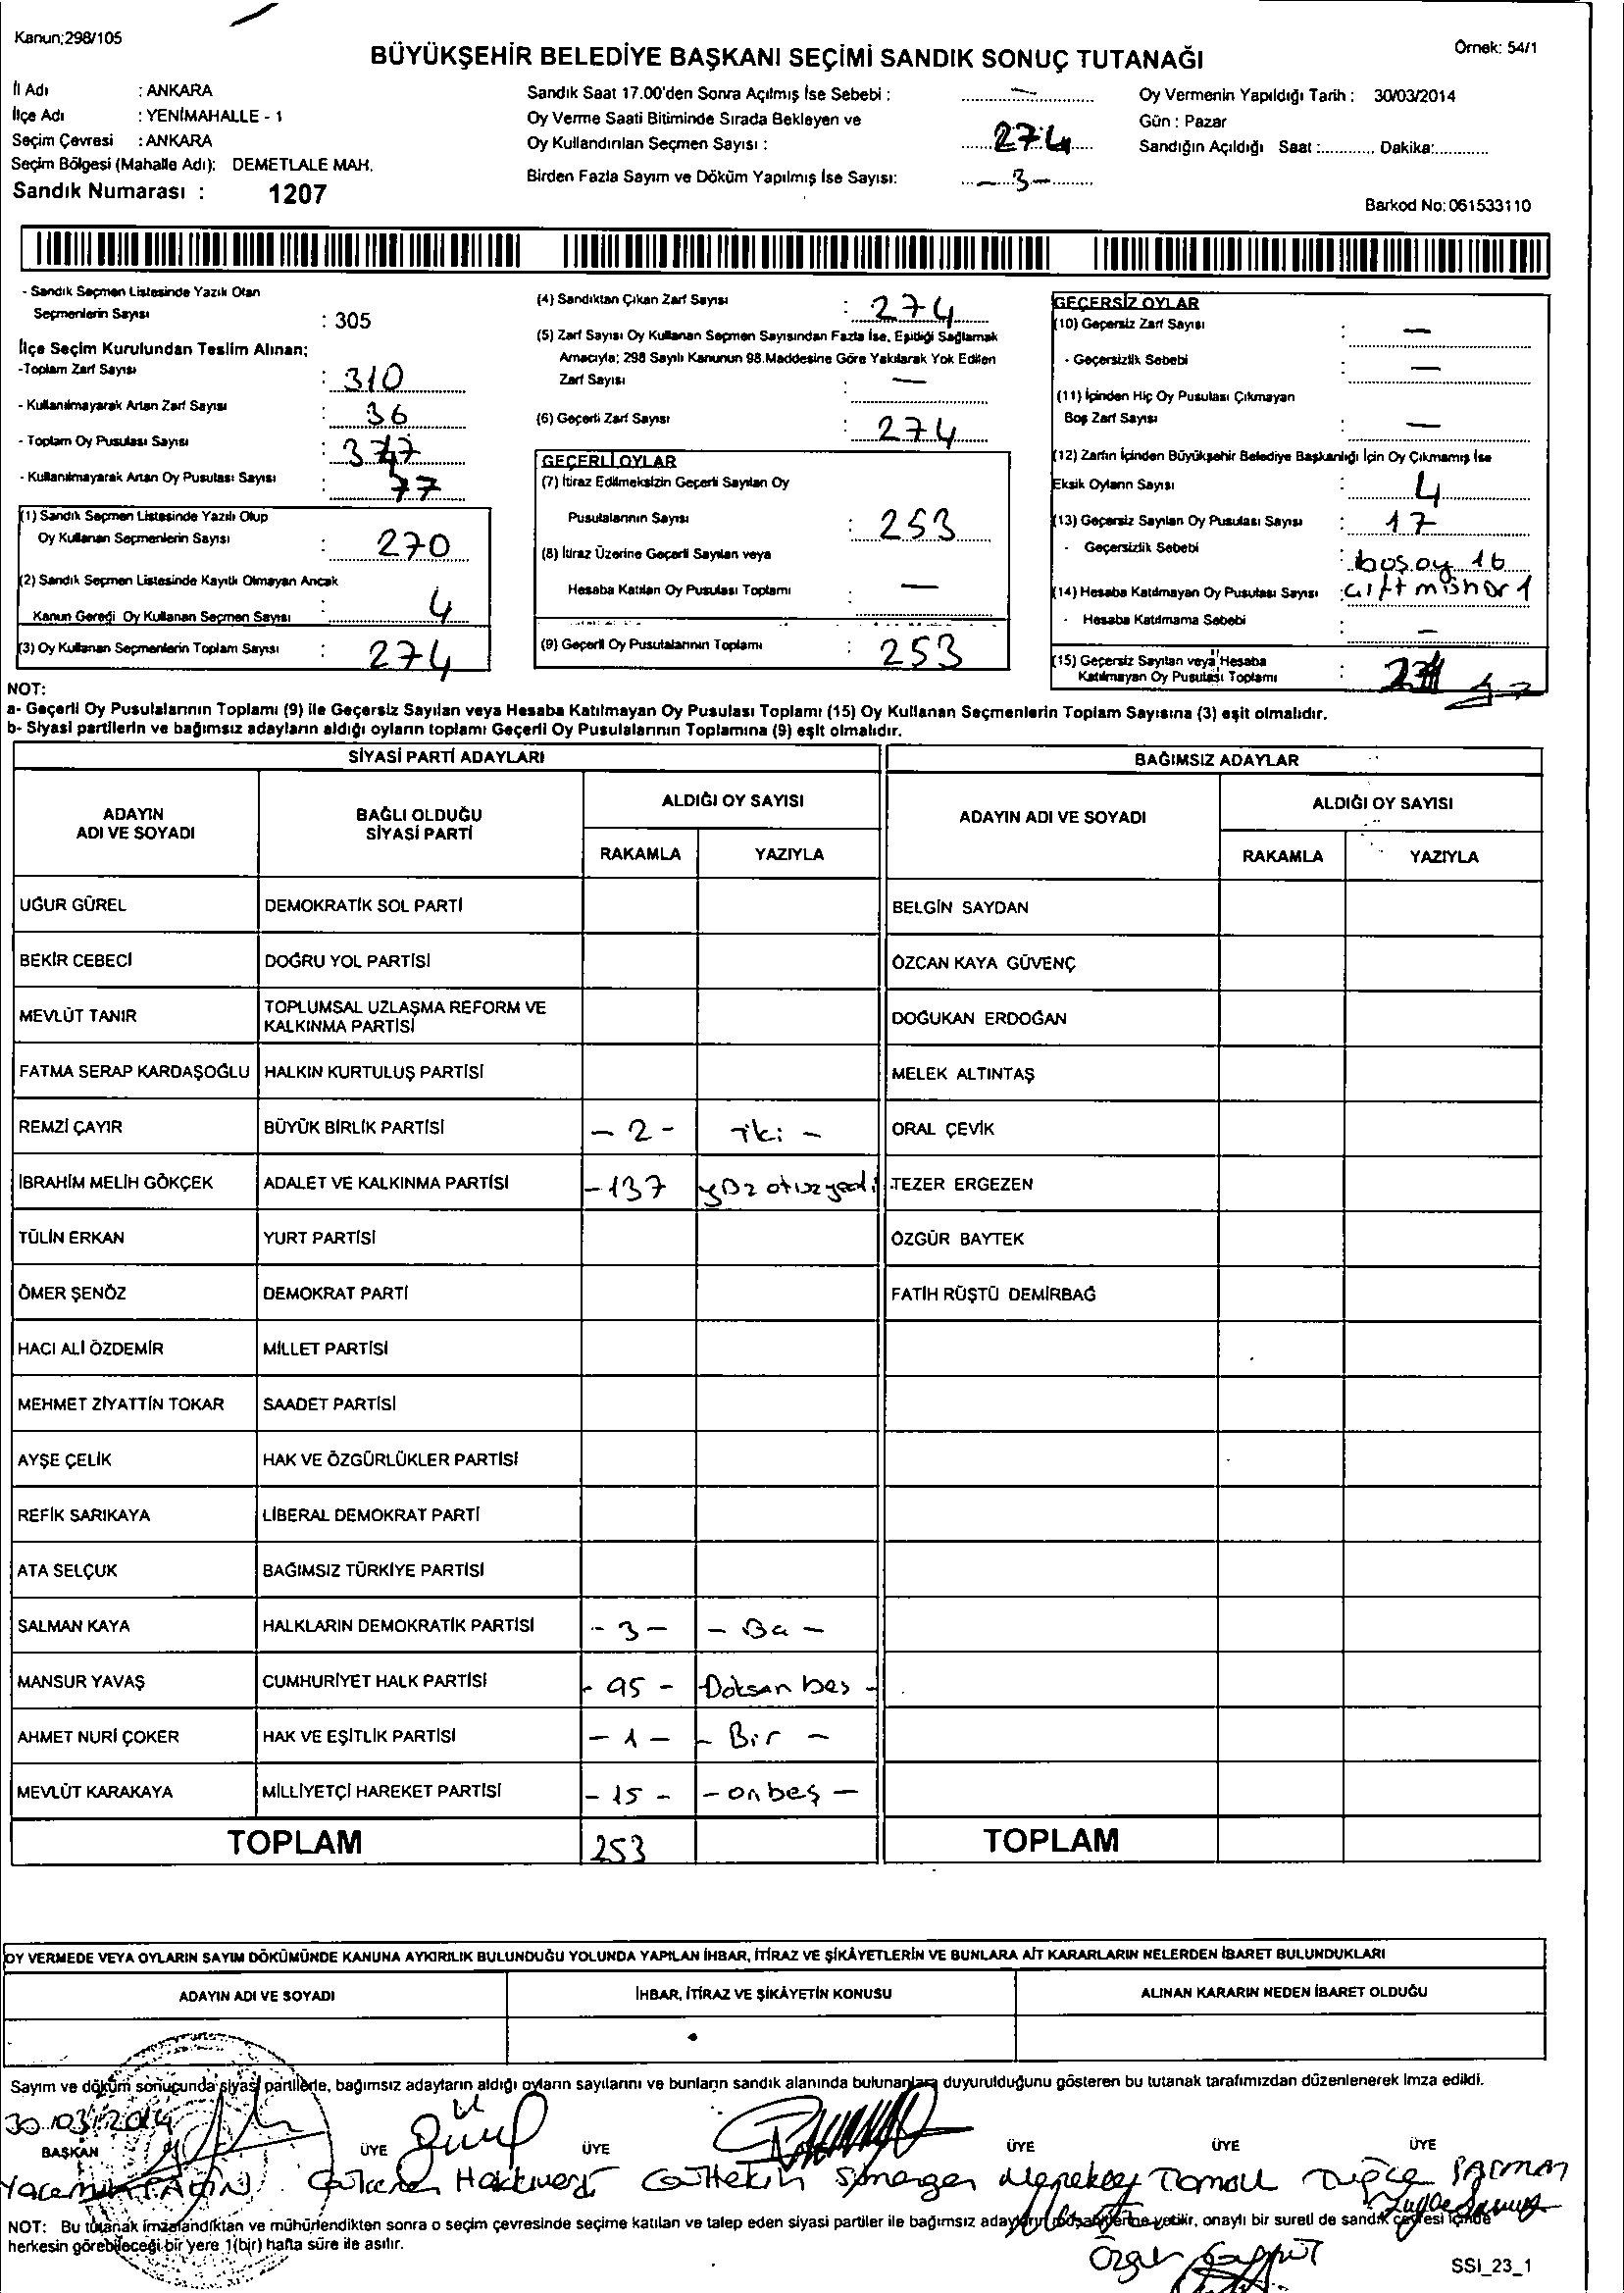 Kanun;298/105
BÜYÜKŞEHİR BELEDİYE BAŞKANI SEÇİMİ SANDIK SONUÇ TUTANAĞI
Örnek: 54/1
İl Adı : ANKARA
İlçe Adı : YENİMAHALLE - 1
Seçim Çevresi : ANKARA
Seçim Bölgesi (Mahalle Adı): DEMETLALE MAH.
Sandık Numarası : 1207
Sandık Saat 17.00'den Sonra Açılmış İse Sebebi : —
Oy Verme Saati Bitiminde Sırada Bekleyen ve
Oy Kullandırılan Seçmen Sayısı : 274
Birden Fazla Sayım ve Döküm Yapılmış İse Sayısı: - 3 -
Oy Vermenin Yapıldığı Tarih : 30/03/2014
Gün : Pazar
Sandığın Açıldığı Saat :............ Dakika:............
Barkod No: 061533110
- Sandık Seçmen Listesinde Yazılı Olan
Seçmenlerin Sayısı : 305
İlçe Seçim Kurulundan Teslim Alınan;
-Toplam Zarf Sayısı : 310
- Kullanılmayarak Artan Zarf Sayısı : 36
- Toplam Oy Pusulası Sayısı : 347
- Kullanılmayarak Artan Oy Pusulası Sayısı : 77
(1) Sandık Seçmen Listesinde Yazılı Olup
Oy Kullanan Seçmenlerin Sayısı : 270
(2) Sandık Seçmen Listesinde Kayıtlı Olmayan Ancak
Kanun Gereği Oy Kullanan Seçmen Sayısı : 4
(3) Oy Kullanan Seçmenlerin Toplam Sayısı : 274
(4) Sandıktan Çıkan Zarf Sayısı : 274
(5) Zarf Sayısı Oy Kullanan Seçmen Sayısından Fazla İse, Eşitliği Sağlamak
Amacıyla; 298 Sayılı Kanunun 98.Maddesine Göre Yakılarak Yok Edilen
Zarf Sayısı : —
(6) Geçerli Zarf Sayısı : 274
GEÇERLİ OYLAR
(7) İtiraz Edilmeksizin Geçerli Sayılan Oy
Pusulalarının Sayısı : 253
(8) İtiraz Üzerine Geçerli Sayılan veya
Hesaba Katılan Oy Pusulası Toplamı : —
(9) Geçerli Oy Pusulalarının Toplamı : 253
GEÇERSİZ OYLAR
(10) Geçersiz Zarf Sayısı : —
- Geçersizlik Sebebi : —
(11) İçinden Hiç Oy Pusulası Çıkmayan
Boş Zarf Sayısı : —
(12) Zarfın İçinden Büyükşehir Belediye Başkanlığı İçin Oy Çıkmamış İse
Eksik Oyların Sayısı : 4
(13) Geçersiz Sayılan Oy Pusulası Sayısı : 17
- Geçersizlik Sebebi : boş oy 16
(14) Hesaba Katılmayan Oy Pusulası Sayısı : çift mühür 1
- Hesaba Katılmama Sebebi : —
(15) Geçersiz Sayılan veya Hesaba
Katılmayan Oy Pusulası Toplamı :
NOT:
a- Geçerli Oy Pusulalarının Toplamı (9) ile Geçersiz Sayılan veya Hesaba Katılmayan Oy Pusulası Toplamı (15) Oy Kullanan Seçmenlerin Toplam Sayısına (3) eşit olmalıdır.
b- Siyasi partilerin ve bağımsız adayların aldığı oyların toplamı Geçerli Oy Pusulalarının Toplamına (9) eşit olmalıdır.
SİYASİ PARTİ ADAYLARI
BAĞIMSIZ ADAYLAR
ADAYIN ADI VE SOYADI
BAĞLI OLDUĞU SİYASİ PARTİ
ALDIĞI OY SAYISI
RAKAMLA
YAZIYLA
ADAYIN ADI VE SOYADI
ALDIĞI OY SAYISI
RAKAMLA
YAZIYLA
UĞUR GÜREL DEMOKRATİK SOL PARTİ BELGİN SAYDAN
BEKİR CEBECİ DOĞRU YOL PARTİSİ ÖZCAN KAYA GÜVENÇ
MEVLÜT TANIR TOPLUMSAL UZLAŞMA REFORM VE KALKINMA PARTİSİ DOĞUKAN ERDOĞAN
FATMA SERAP KARDAŞOĞLU HALKIN KURTULUŞ PARTİSİ MELEK ALTINTAŞ
REMZİ ÇAYIR BÜYÜK BİRLİK PARTİSİ - 2 - iki - ORAL ÇEVİK
İBRAHİM MELİH GÖKÇEK ADALET VE KALKINMA PARTİSİ - 137 yüz otuz yedi TEZER ERGEZEN
TÜLİN ERKAN YURT PARTİSİ ÖZGÜR BAYTEK
ÖMER ŞENÖZ DEMOKRAT PARTİ FATİH RÜŞTÜ DEMİRBAĞ
HACI ALİ ÖZDEMİR MİLLET PARTİSİ
MEHMET ZİYATTİN TOKAR SAADET PARTİSİ
AYŞE ÇELİK HAK VE ÖZGÜRLÜKLER PARTİSİ
REFİK SARIKAYA LİBERAL DEMOKRAT PARTİ
ATA SELÇUK BAĞIMSIZ TÜRKİYE PARTİSİ
SALMAN KAYA HALKLARIN DEMOKRATİK PARTİSİ - 3 -
MANSUR YAVAŞ CUMHURİYET HALK PARTİSİ - 95 - -Doksan beş -
AHMET NURİ ÇOKER HAK VE EŞİTLİK PARTİSİ - 1 - - Bir -
MEVLÜT KARAKAYA MİLLİYETÇİ HAREKET PARTİSİ - 15 - - on beş -
TOPLAM 253 TOPLAM
OY VERMEDE VEYA OYLARIN SAYIM DÖKÜMÜNDE KANUNA AYKIRILIK BULUNDUĞU YOLUNDA YAPILAN İHBAR, İTİRAZ VE ŞİKÂYETLERİN VE BUNLARA AİT KARARLARIN NELERDEN İBARET BULUNDUKLARI
ADAYIN ADI VE SOYADI İHBAR, İTİRAZ VE ŞİKÂYETİN KONUSU ALINAN KARARIN NEDEN İBARET OLDUĞU
Sayım ve döküm sonucunda siyasi partilerle, bağımsız adayların aldığı oyların sayılarını ve bunların sandık alanında bulunanlara duyurulduğunu gösteren bu tutanak tarafımızdan düzenlenerek imza edildi.
30/03/2014
BAŞKAN ÜYE ÜYE ÜYE ÜYE ÜYE
NOT: Bu tutanak imzalandıktan ve mühürlendikten sonra o seçim çevresinde seçime katılan ve talep eden siyasi partiler ile bağımsız verilir, onaylı bir sureti de sandık çevresi içinde
herkesin görebileceği bir yere 1(bir) hafta süre ile asılır.
SSI_23_1